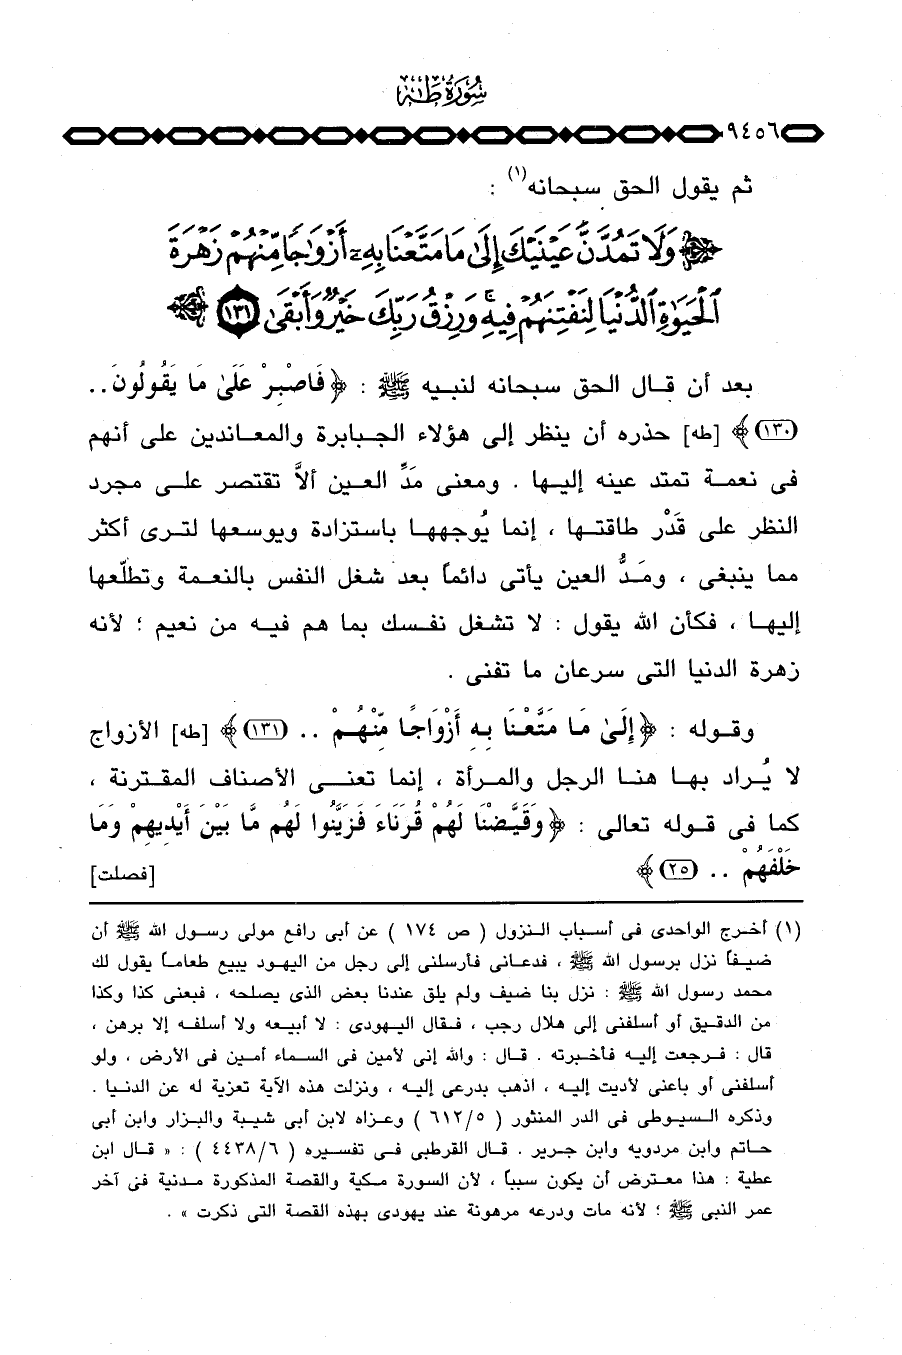 سُورَةُ طه
٩٤٥٦
ثم يقول الحق سبحانه(١) :
﴿ وَلَا تَمُدَّنَّ عَيْنَيْكَ إِلَىٰ مَا مَتَّعْنَا بِهِۦٓ أَزْوَٰجًا مِّنْهُمْ زَهْرَةَ
ٱلْحَيَوٰةِ ٱلدُّنْيَا لِنَفْتِنَهُمْ فِيهِ ۚ وَرِزْقُ رَبِّكَ خَيْرٌ وَأَبْقَىٰ ١٣١ ﴾
بعد أن قال الحق سبحانه لنبيه ﷺ : ﴿ فَاصْبِرْ عَلَىٰ مَا يَقُولُونَ ..
(١٣٠) ﴾ [طه] حذره أن ينظر إلى هؤلاء الجبابرة والمعاندين على أنهم
فى نعمة تمتد عينه إليها . ومعنى مَدِّ العين ألاَّ تقتصر على مجرد
النظر على قَدْر طاقتها ، إنما يُوجهها باستزادة ويوسعها لترى أكثر
مما ينبغى ، ومَدُّ العين يأتى دائماً بعد شغل النفس بالنعمة وتطلّعها
إليها ، فكأن الله يقول : لا تشغل نفسك بما هم فيه من نعيم ؛ لأنه
زهرة الدنيا التى سرعان ما تفنى .
وقوله : ﴿ إِلَىٰ مَا مَتَّعْنَا بِهِ أَزْوَاجًا مِّنْهُمْ .. (١٣١) ﴾ [طه] الأزواج
لا يُراد بها هنا الرجل والمرأة ، إنما تعنى الأصناف المقترنة ،
كما فى قوله تعالى : ﴿ وَقَيَّضْنَا لَهُمْ قُرَنَاءَ فَزَيَّنُوا لَهُم مَّا بَيْنَ أَيْدِيهِمْ وَمَا
خَلْفَهُمْ .. (٢٥) ﴾ [فصلت]
(١) أخرج الواحدى فى أسباب النزول ( ص ١٧٤ ) عن أبى رافع مولى رسول الله ﷺ أن
ضيفاً نزل برسول الله ﷺ ، فدعانى فأرسلنى إلى رجل من اليهود يبيع طعاماً يقول لك
محمد رسول الله ﷺ : نزل بنا ضيف ولم يلق عندنا بعض الذى يصلحه ، فبعنى كذا وكذا
من الدقيق أو أسلفنى إلى هلال رجب ، فقال اليهودى : لا أبيعه ولا أسلفه إلا برهن ،
قال : فرجعت إليه فأخبرته . قال : والله إنى لأمين فى السماء أمين فى الأرض ، ولو
أسلفنى أو باعنى لأديت إليه ، اذهب بدرعى إليه ، ونزلت هذه الآية تعزية له عن الدنيا .
وذكره السيوطى فى الدر المنثور ( ٦١٢/٥ ) وعزاه لابن أبى شيبة والبزار وابن أبى
حاتم وابن مردويه وابن جرير . قال القرطبى فى تفسيره ( ٤٤٣٨/٦ ) : « قال ابن
عطية : هذا معترض أن يكون سبباً ، لأن السورة مكية والقصة المذكورة مدنية فى آخر
عمر النبى ﷺ ؛ لأنه مات ودرعه مرهونة عند يهودى بهذه القصة التى ذكرت » .